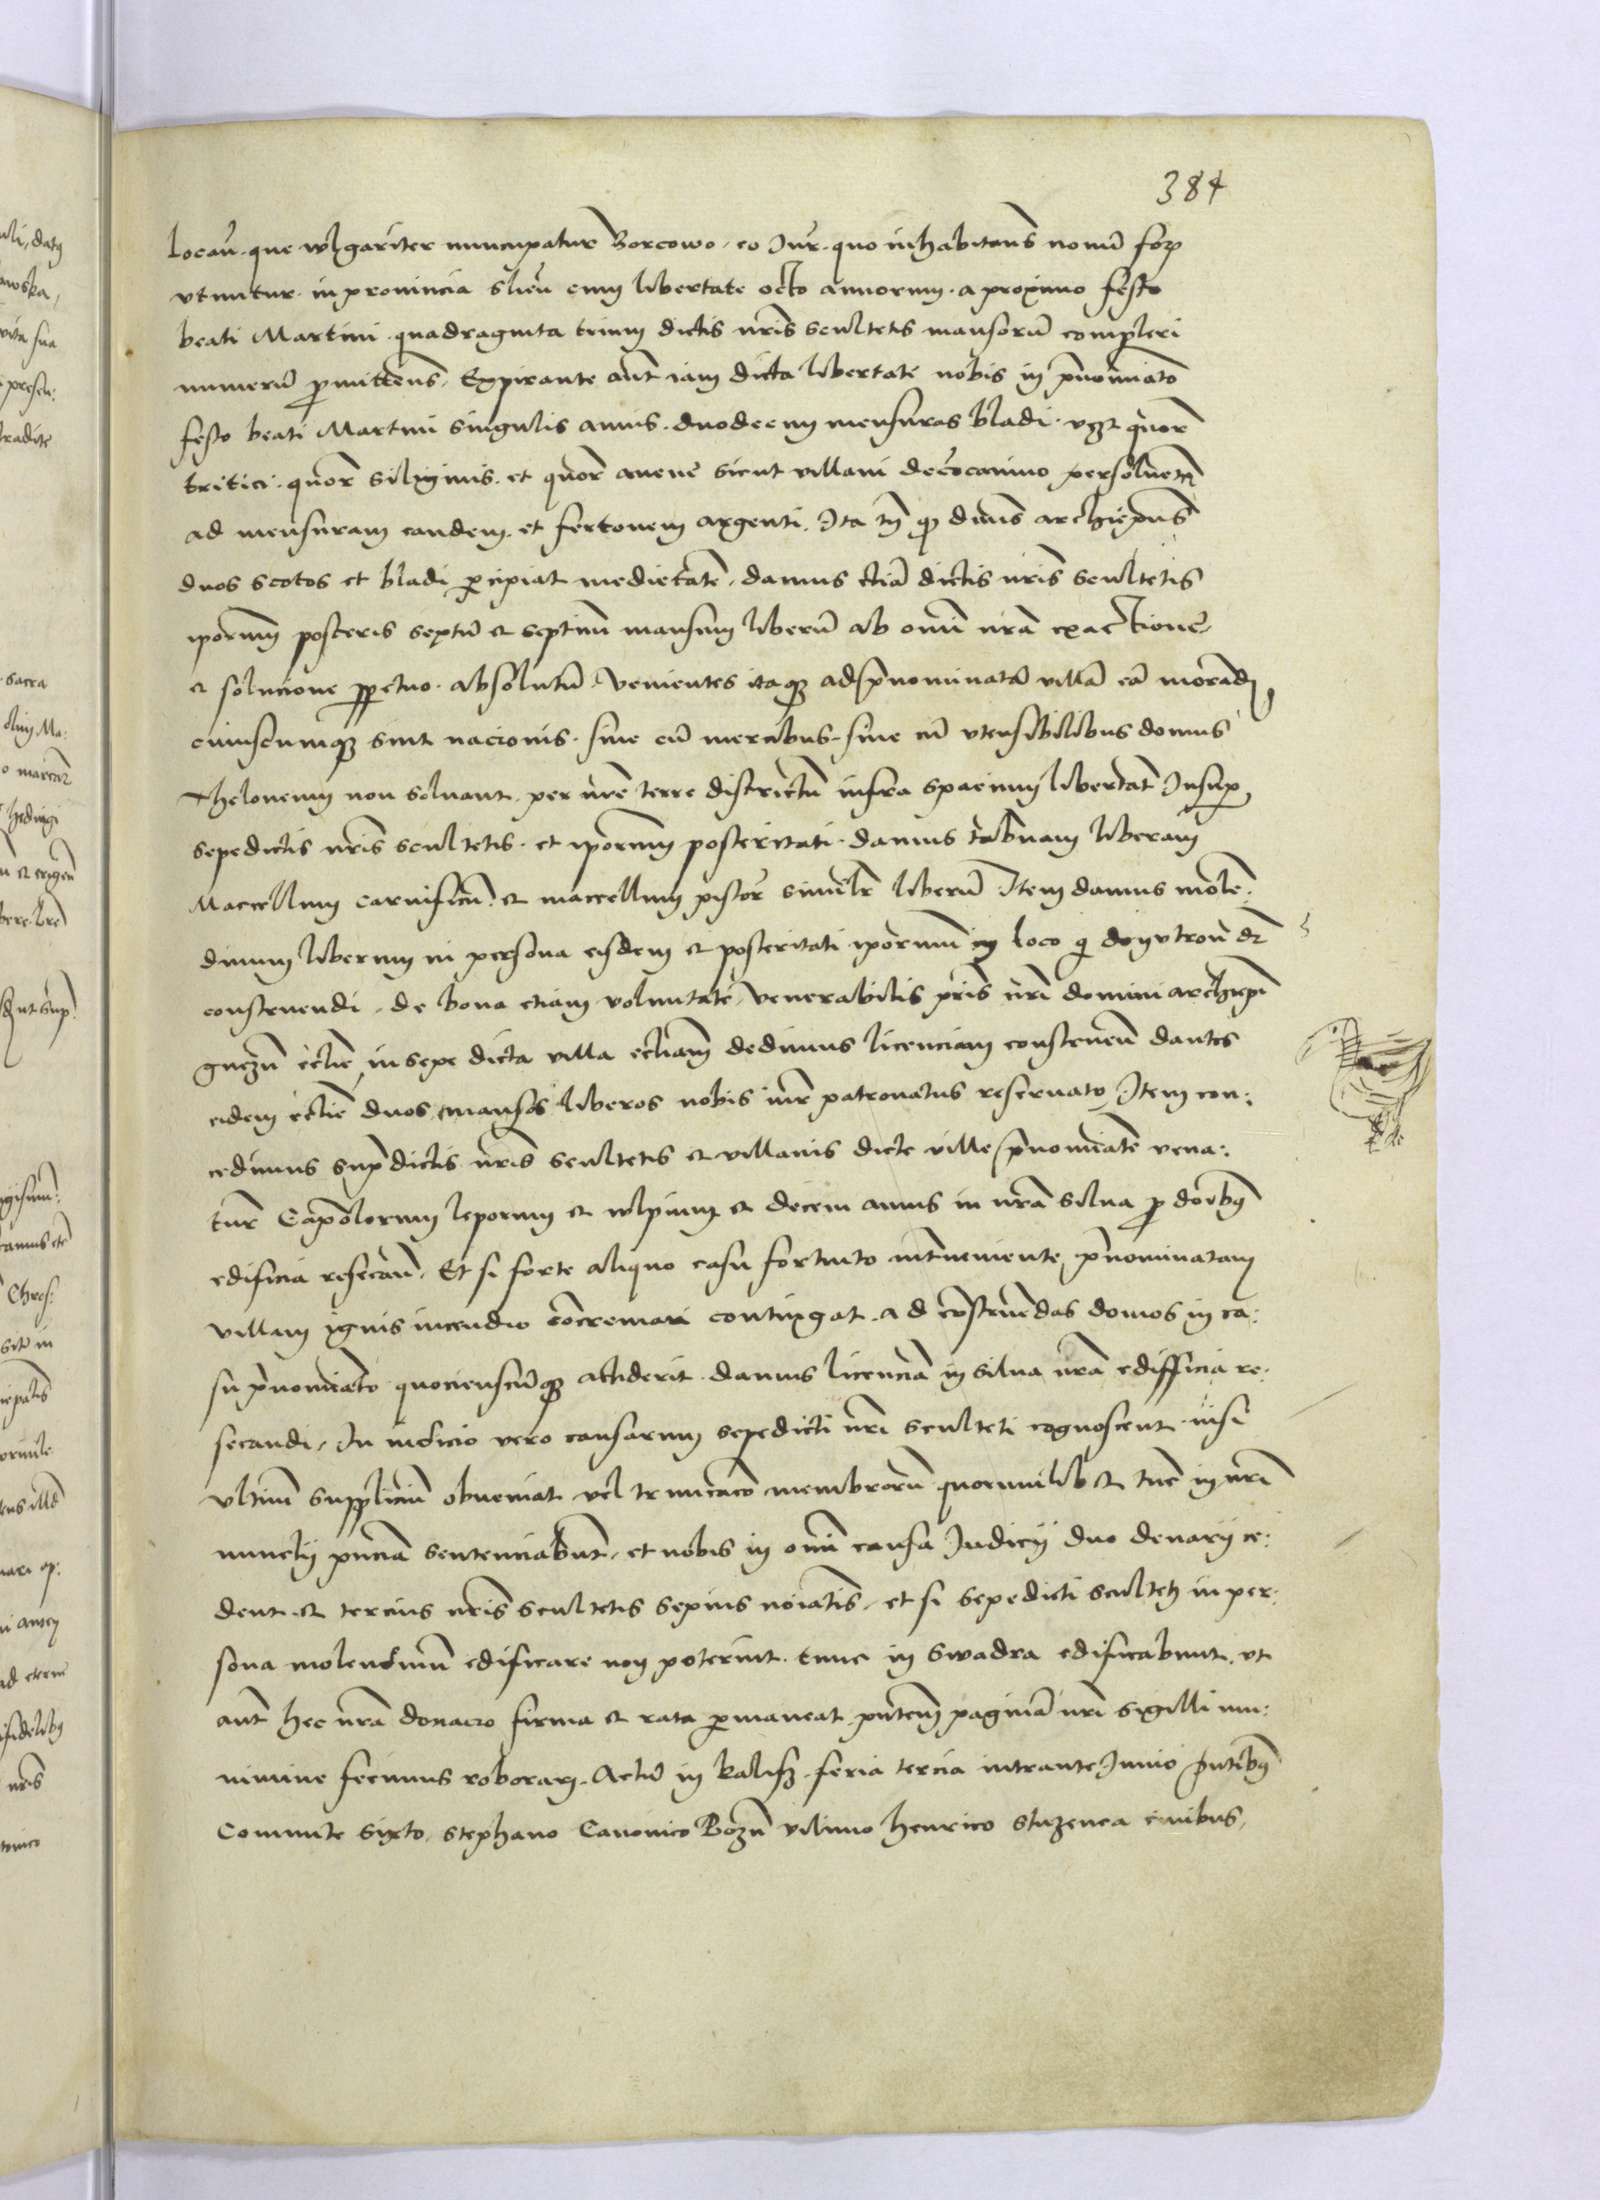 384
locan̄. que wlgariter nuncupatur Borcowo. eo Jur̄. quo inhabitan̄s nouū for̄
vtuntur. in prouincia slien̄ cum libertate octo annorum. a proximo festo
beati Martini. quadraginta trium dictis nr̄is scultetis mansorū compleri
numerū ꝓmitten̄s. Expirante aūt iam dicta libertate nobis in p̄no̅i̅ato
festo beati Martini singulis annis. duodecim mensuras bladi. vꝫ quor̄
tritici. quor̄ siliginis. et quor̄ auene sicut villani de cocanino persoluent
ad mensuram eandem. et fertonem argenti. Ita tn̄ ꝙ dn̄us archiep̄us
duos scotos et bladi ꝑcipiat medietatē. damus etiā dictis nr̄is scultetis
ip̄orum posteris sextū et septimū mansum liberū ab om̄i nr̄a exactione
et solucione ꝑpetuo. absolutū. Venientes itaqꝫ ad p̄nominatā villā cā morandi
cuiuscumqꝫ sint nacionis. siue cū mercibus. siue cū vtensilibus domus
Thelonenm non soluant. per nr̄e terre districtū infra spacium libertat̄ Insuꝑ
sepedictis nr̄is scultetis. et ip̄orum posteritati. damus tab̄nam liberam
Maccellum carnificū. et maccellum pistor̄ simil̄r liberū Item damus mole:
dinum liberum in persona eisdem et posteritati ip̄orum in loco q̄ dr̄
construendi. de bona etiam voluntate. venerabilis pr̄is nr̄i domini archiep̄i
gnezn̄ eccl̄ie. in sepe dicta villa eccl̄iam dedimus licenciam construen̄ dantes
eidem eccl̄ie duos mansos liberos nobis iur̄e patronatus reseruato. Item con:
cedimus sup̄dictis nr̄is scultetis et villanis dicte ville p̄no̅i̅ate vena:
tur̄ Cap̄olorum leporum et wlpium et decem annis in nr̄a silua ꝓ domibꝫ
edificia resecan̄. Et si forte aliquo casu fortuito int̄ueniente p̄nominatam
villam ignis incendio cōcremari contingat. ad cōstruendas domos in ca:
su p̄no̅i̅ato quocienscūqꝫ acciderit. damus licenciā in silua nr̄a edifficia re:
secandi. In iudicio vero causarum sepedicti nr̄i sculteti cognoscent. nisi
vltimū suppliciū obueniat vel truncacō membrorū quorumlibet tūc in nr̄i
nuncij pn̄cia sentenciabunt. et nobis in om̄i causa Judicij duo denarij ce:
dent et tercius nr̄is scultetis sepius no̅i̅atis. et si sepedicti scultetj in per:
sona molendinū edificare non poterint. tunc in Swadra edificabunt. vt
aūt hec nr̄a donacio firma et rata ꝑmaneat pn̄tem paginā nr̄i sigilli mu:
nimine fecimus roborari. Actū in kalisz. feria tercia intrante Junio pn̄tibꝫ
Comite Sixto. stephano Canonico Bozn̄ vilimo henrico ciuibus.